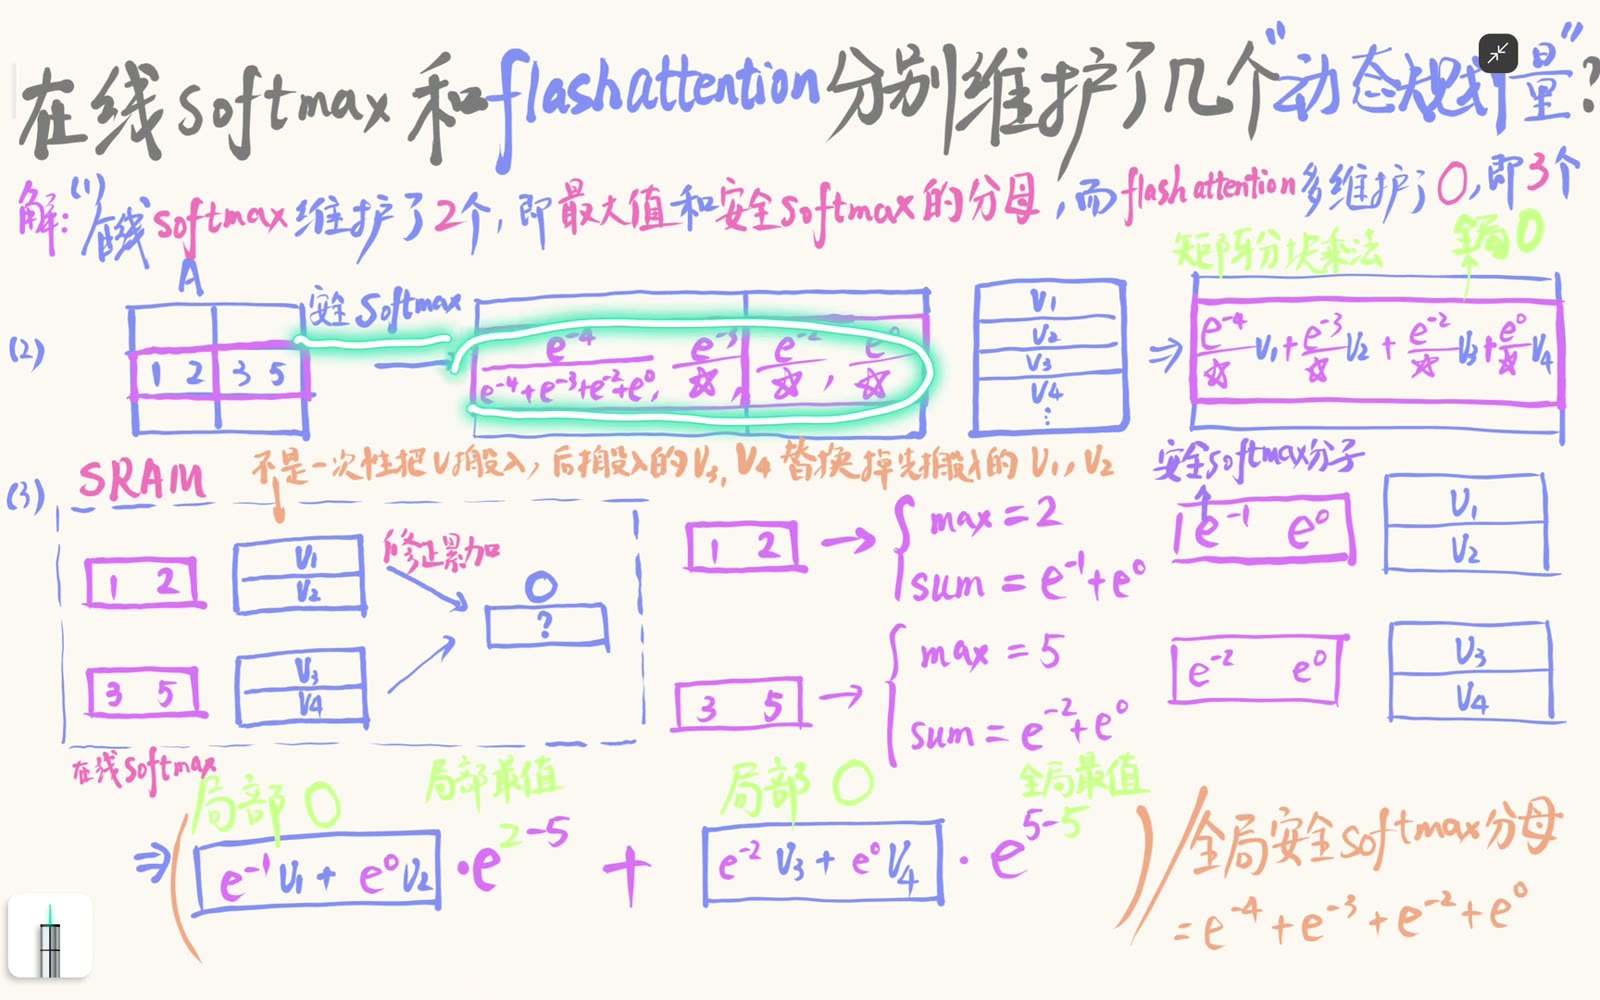 在线softmax和flashattention分别维护了几个"动态规划量"?
解:(1)在线softmax维护了2个,即最大值和安全softmax的分母,而flashattention多维护了O,即3个
A
安全softmax
矩阵分块乘法
全局O
(2)
1 2 3 5
e⁻⁴/(e⁻⁴+e⁻³+e⁻²+e⁰), e⁻³/☆, e⁻²/☆, e⁰/☆
V₁
V₂
V₃
V₄
⋮
⇒ e⁻⁴/☆ V₁+ e⁻³/☆ V₂ + e⁻²/☆ V₃+ e⁰/☆ V₄
(3)
SRAM
不是一次性把V搬入,后搬入的V₃,V₄替换掉先搬入的V₁,V₂
安全softmax分子
1 2
V₁
V₂
修正累加
O
?
3 5
V₃
V₄
在线softmax
1 2 → { max = 2
sum = e⁻¹+e⁰
e⁻¹ e⁰
V₁
V₂
3 5 → { max = 5
sum = e⁻²+e⁰
e⁻² e⁰
V₃
V₄
局部O
局部最值
局部O
全局最值
⇒ ( e⁻¹V₁+ e⁰V₂ · e²⁻⁵ + e⁻²V₃+ e⁰V₄ · e⁵⁻⁵ ) / 全局安全softmax分母
= e⁻⁴+e⁻³+e⁻²+e⁰